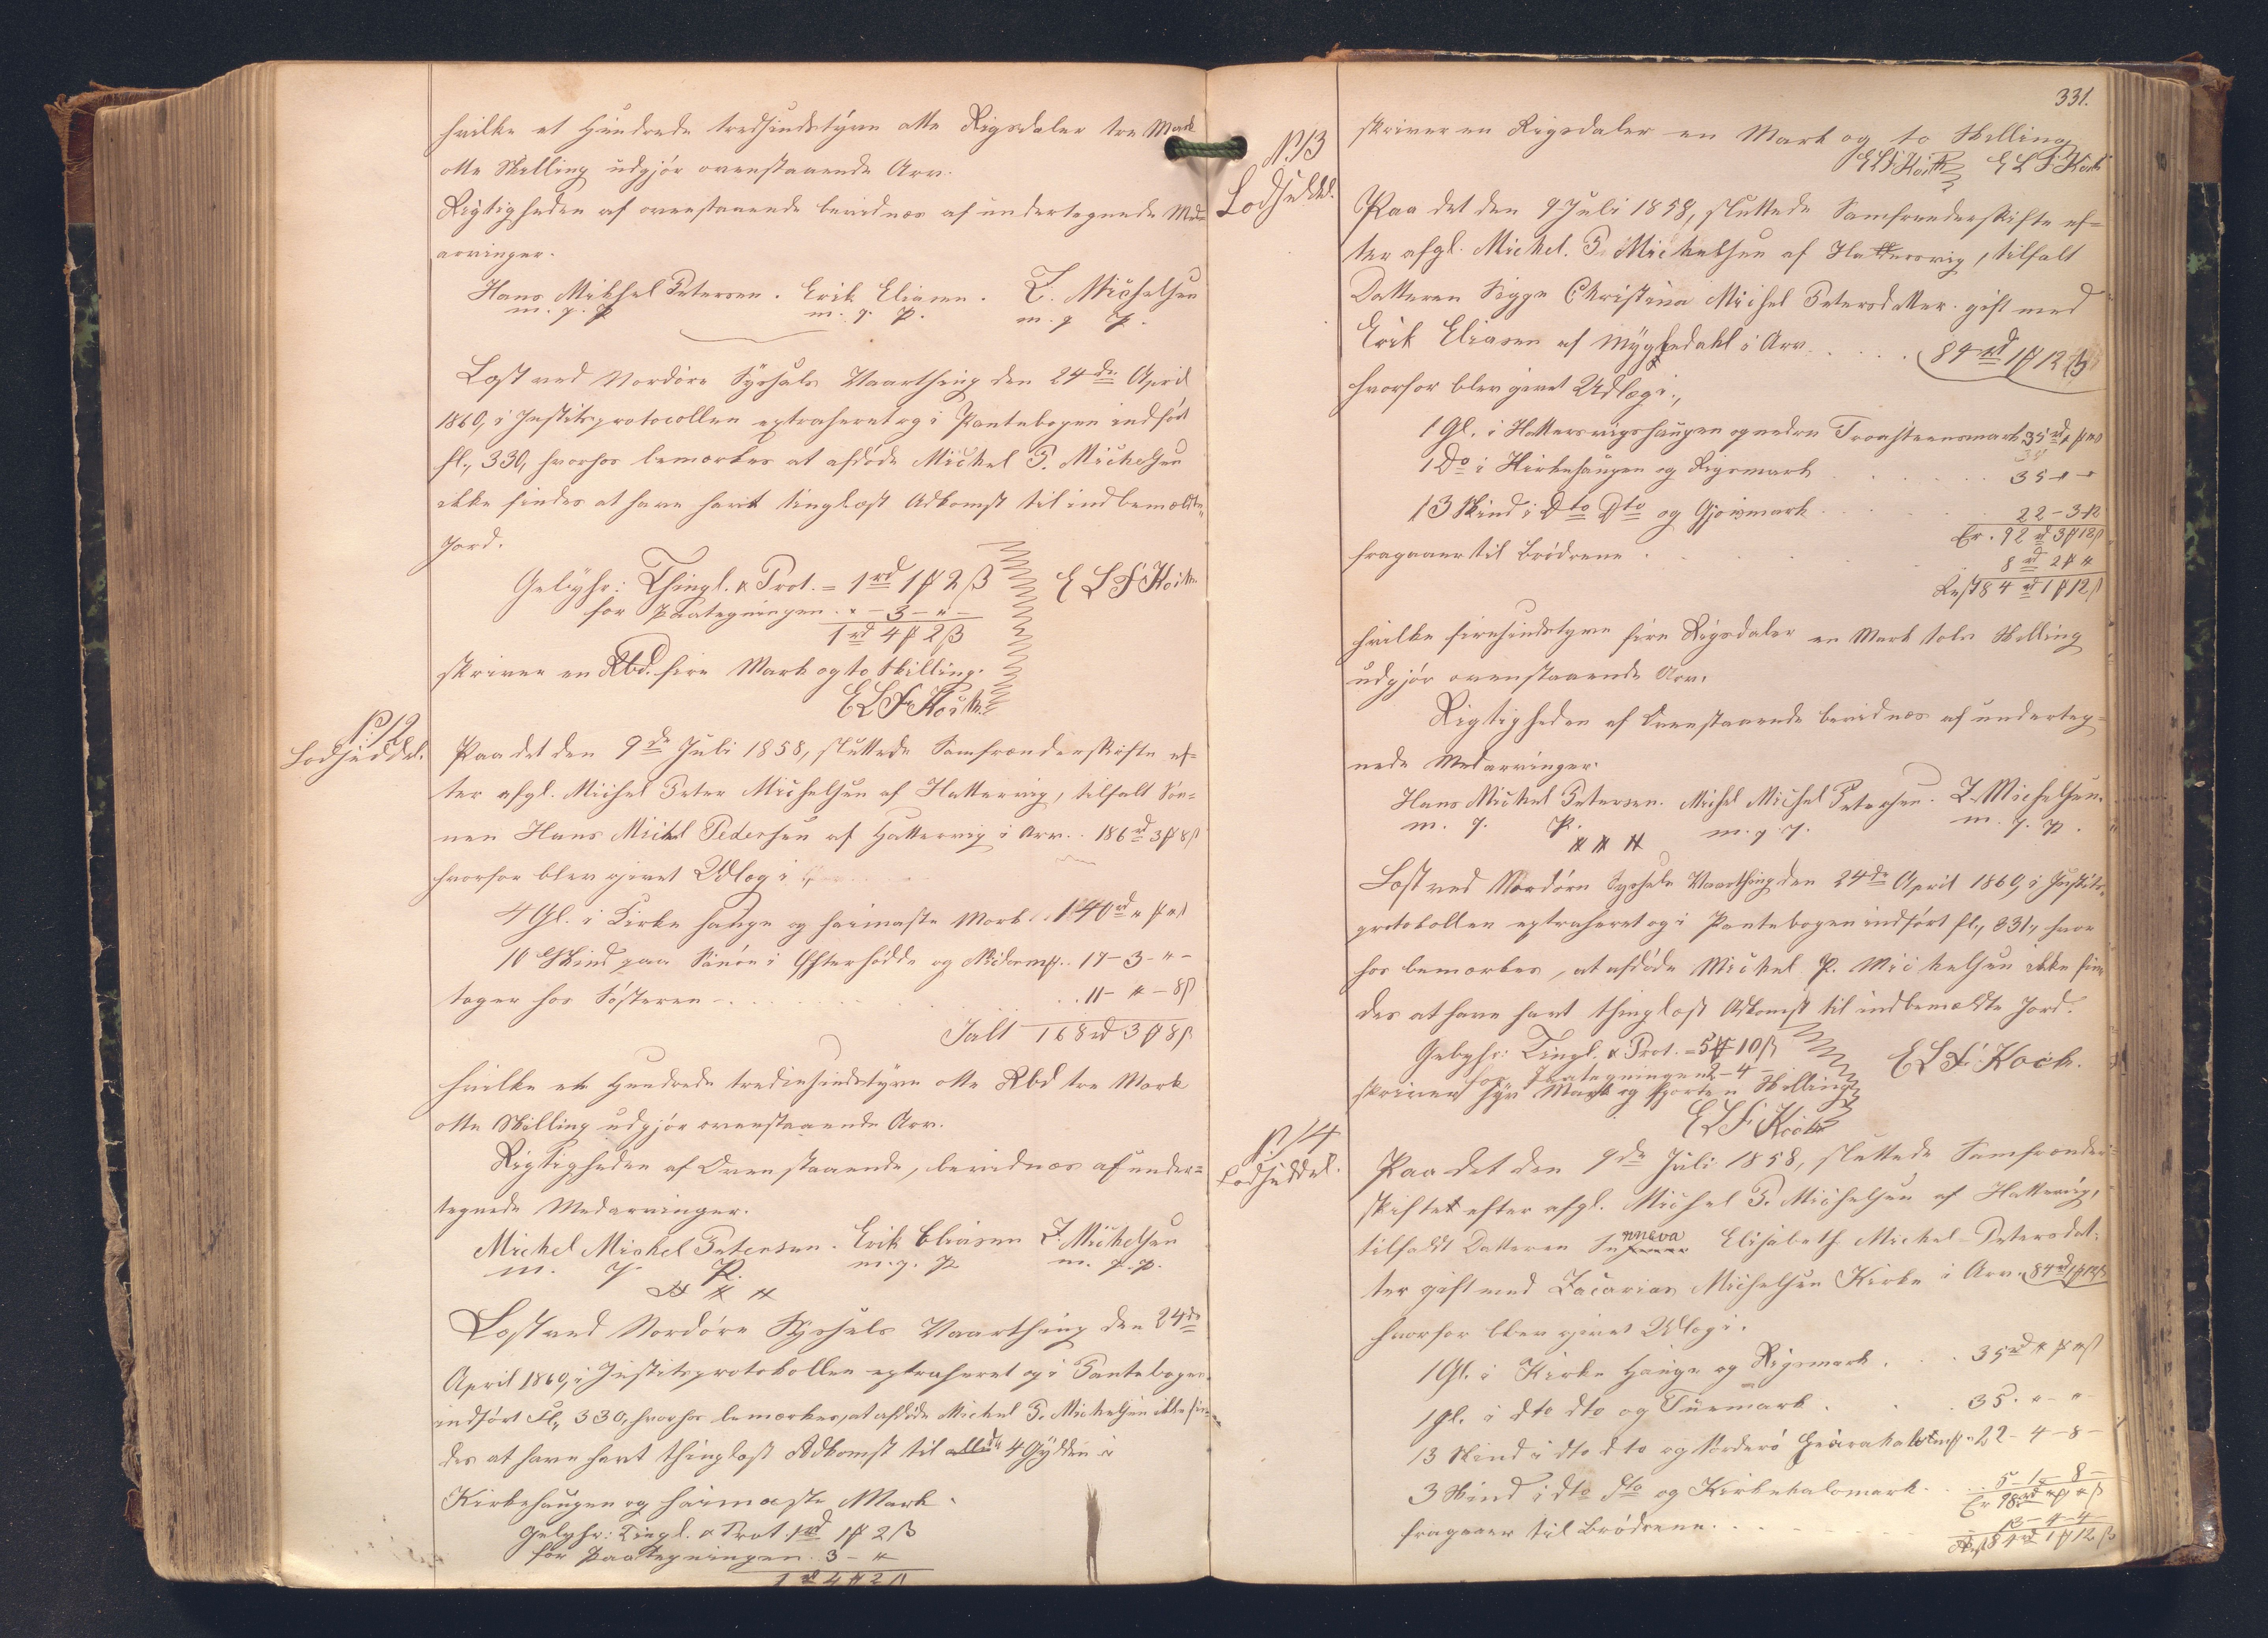 hvilke et Hundrede tredsindstyve otte Rigsdaler tre Mark
otte Skilling udgjör ovenstaaende Arv.
Rigtigheden af ovenstaaende bevidnes af undertegnede Med-
arvinger.
Hans Mikhel Petersen. Erik Eliasen. Z. Michelsen
m. p. p. m. p. p. m. p. p.
Læst ved Norderø Syssels Vaarthing den 24de April
1860, i Justitsprotocollen extraheret og i Pantebogen indfört
fl., 330, hvorhos bemærkes at afdöde Michel P. Michelsen
ikke findes at have havt tinglæst Adkomst til indbemældte
Jord.
Gebyhr: Thingl. & Prot. = 1rd 1 # 2 ß ELF Koch
for Paategningen . " - 3 - " -
1 rd 4 # 2 ß
skriver en Rbd. fire Mark og to Skilling.
ELF Koch
N. 12
Lodseddel.
Paa det den 9de Juli 1858, sluttede Samfrændeskifte ef-
ter afgl. Michel Peter Michelsen af Hattervig, tilfalt Sön-
nen Hans Michel Pedersen af Hattervig i Arv . . 186 rd 3 # 8 ß
hvorfor blev givet Udlæg i
4 Gl. i Kirke hauge og heimaste Mark . 140 rd " # " ß
10 Skind paa i og . . 17 - 3 - " -
tager hos Sösteren - . . . 11 - " - 8 ß
Ialt 168 rd 3 # 8 ß
hvilke et Hundrede tredsindstyve otte Rbd tre Mark
otte Skilling udgjör ovenstaaende Arv.
Rigtigheden af Ovenstaaende, bevidnes af under-
tegnede Medarvinger.
Michel Michel Petersen. Erik Eliasen Z. Michelsen
m. p. p. m. p. p. m. p. p.
Læst ved Norderø Syssels Vaarthing den 24de
April 1860, i Justitsprotokollen extraheret og i Pantebogen
indfört Fl., 330, hvorhos bemærkes, at afdöde Michel P. Michelsen ikke fin-
des at have havt thinglæst Adkomst til 4 Gylden i
Kirkehaugen og heimaste Mark.
Gebyhr: Tingl. & Prot. 1 rd 1 # 2 ß
for Paategningen . 3 - "
1 rd 4 # 2 ß
331.
skriver en Rigsdaler en Mark og to Skilling
ELF Koch ELF Koch
N. 13
Lodseddel.
Paa det den 9 Juli 1858, sluttede Samfrændeskifte ef-
ter afgl. Michel. P. Michelsen af Hattersvig, tilfalt
Datteren Sigge Christina Michel Petersdatter gift med
Erik Eliasen af Mygledahl i Arv . . . . 84 rd 1 # 12 ß
hvorfor blev givet Udlæg i.,
1 Gl. i Hattersvigshaugen og nedre 35 rd " # " ß
1 Do i Kirkehaugen og Rigsmark . . . 35 - " - "
13 Skind i Dto Dto og Gjovmark . . . 22 - 3 - 12
Er . 92 rd 3 # 12 ß
fragaaer til Brödrene . . . 8 rd 2 # "
Rest 84 rd 1 # 12 ß
hvilke firesindstyve fire Rigsdaler en Mark tolv Skilling
udgjör ovenstaaende Arv.
Rigtigheden af Ovenstaaende bevidnes af underteg-
nede Medarvinger.
Hans Michel Petersen. Michel Michel Petersen. Z. Michelsen.
m. p. p. m. p. p. m. p. p.
Læst ved Norderø Syssels Vaarthing den 24de April 1860, i Justits-
protokollen extraheret og i Pantebogen indfört fl., 331, hvor
hos bemærkes, at afdöde Michel P. Michelsen ikke fin-
des at have havt thinglæst Adkomst til indbemældte Jord.
Gebyhr: Tingl. & Prot. = 5 # 10 ß ELF Koch.
for Paategningen 2 - 4 -
skriver syv Mark og fjorten Skilling
ELF Koch
N. 14
Lodseddel.
Paa det den 9de Juli 1858, sluttede Samfrænde-
skiftet efter afgl. Michel P. Michelsen af Hattervig,
tilfaldt Datteren Sunneva Elisabeth Michel Petersdat-
ter gift med Zacarias Michelsen Kirke i Arv. 84 rd 1 # 12 ß
hvorfor blev givet Udlæg i.
1 Gl. i Kirke Hauge og Rigsmark . . . 35 rd " # " ß
1 Gl. i dto dto og Tuemark . . . 35 . " - "
13 Skind i dto dto og Norderö 22 - 4 - 8 -
3 Skind i dto dto og Kirkehalsmark . . 5 - 1 - 8 -
Er 98 rd " # " ß
fragaaer til Brödrene. . . 13 - 4 - 4
Rest 84 rd 1 # 12 ß